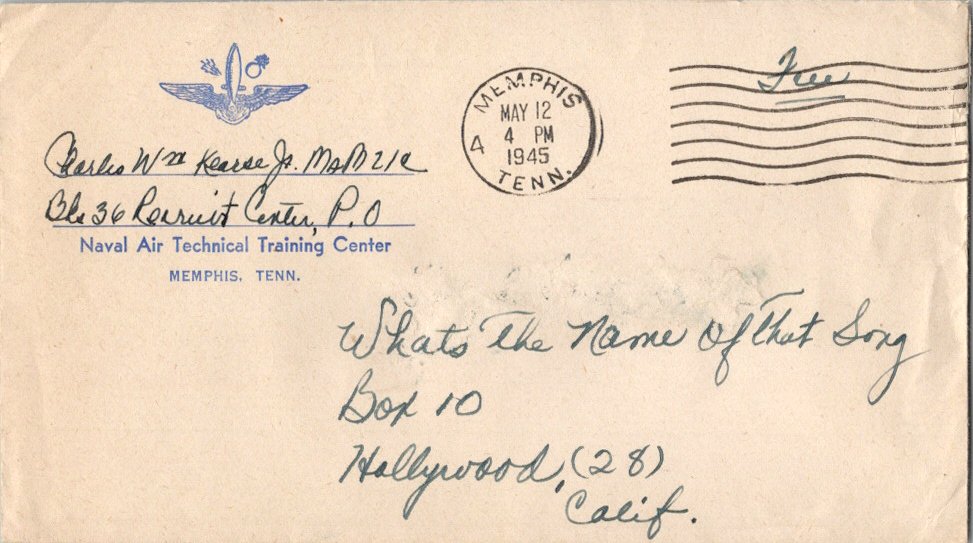 Charles Wm Kearse Jr. MoMM 2/c
Blk 36 Recruit Center, P.O
Naval Air Technical Training Center
MEMPHIS, TENN.
MEMPHIS
MAY 12
4 PM
1945
TENN.
4
Free
Whats The Name Of That Song
Box 10
Hollywood, (28)
Calif.